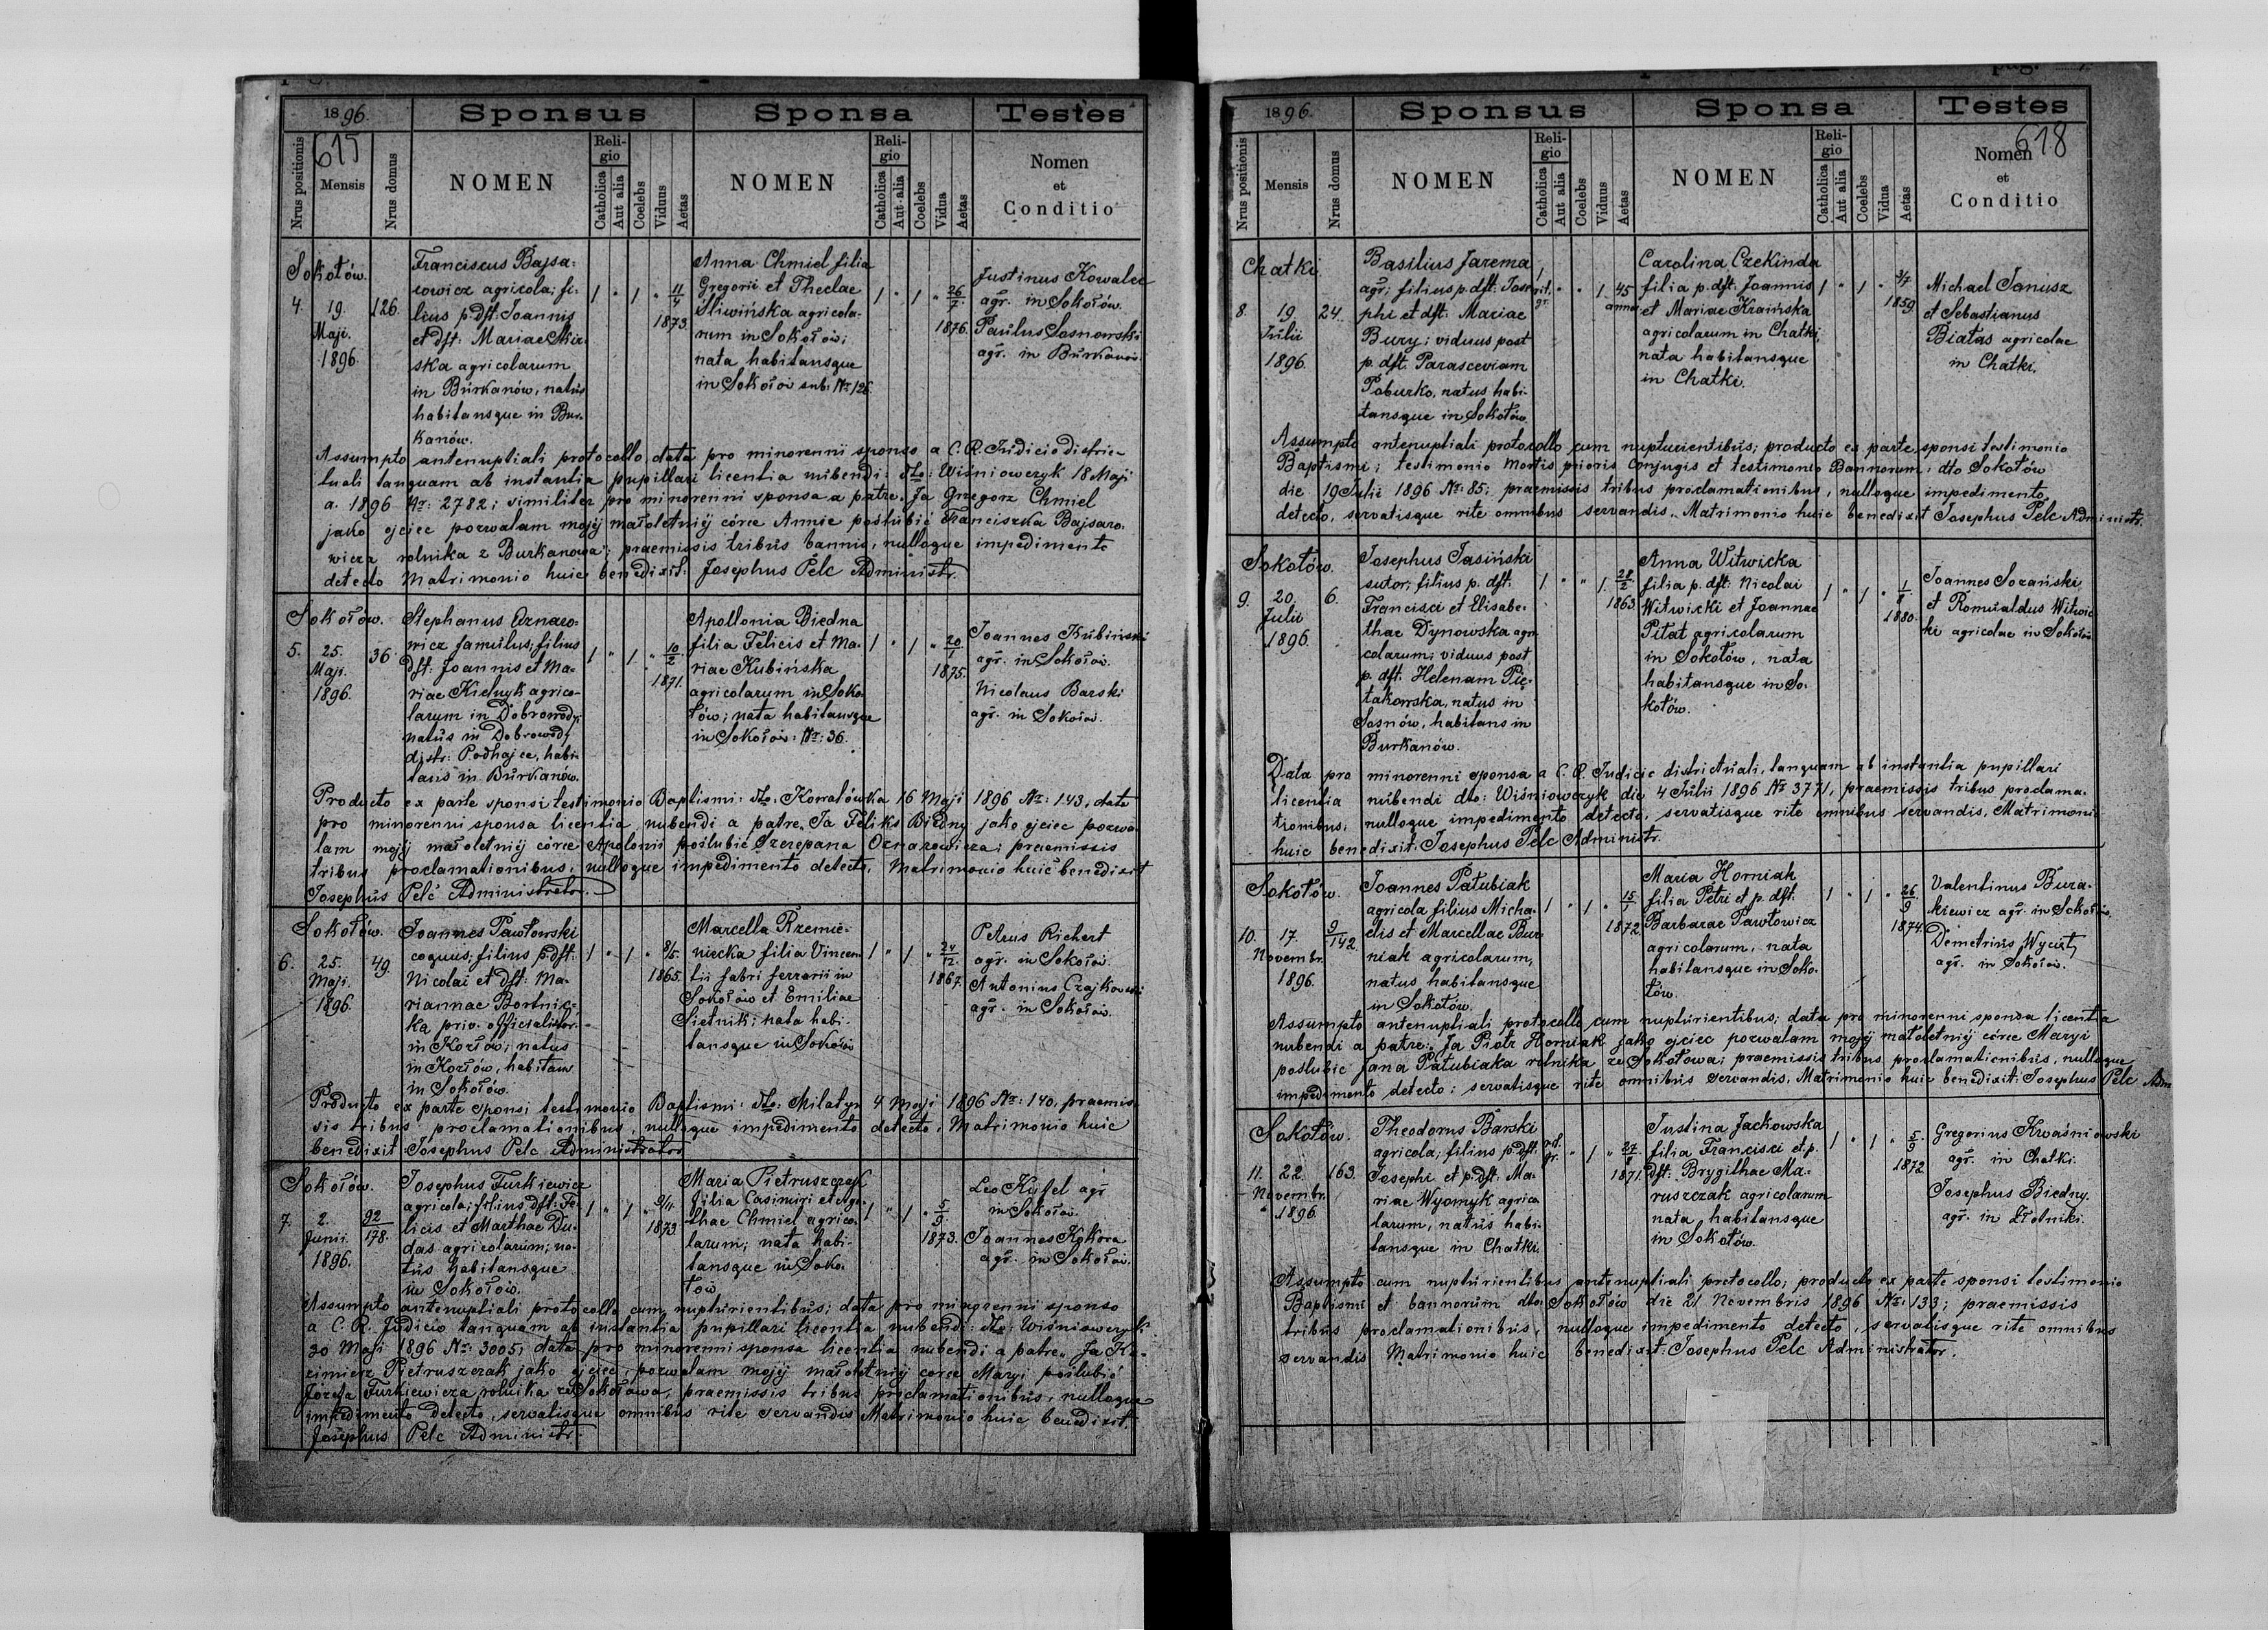 1896.
Sponsus
Sponsa
Testes
615
Nrus positionis
Mensis
Nrus domus
NOMEN
Religio
Catholica
Aut alia
Coelebs
Viduus
Aetas
NOMEN
Religio
Catholica
Aut alia
Coelebs
Vidua
Aetas
Nomen
et
Conditio
Sokołów.
4. 19. Maji. 1896. 126.
Franciscus Bajsa:
rowicz agricola; fi:
lius p. dft: Joannis
et dft: Mariae
ska agricolarum
in Burkanów, natus
habitansque in Bur:
kanów.
1 " 1 " 11/4 1873.
Anna Chmiel filia
Gregorii et Theclae
Śliwińska agricola:
rum in Sokołów;
nata habitansque
in Sokołów sub: Nr: 126.
1 " 1 " 26/7 1876.
Justinus Kowalec
agr. in Sokołów.
Paulus Sosnowski
agr. in Burkanów.
Assumpto antenuptiali protocollo, data pro minorenni sponso a C. R. Judicio distric-
tuali tanquam ab instantia pupillari licentia nubendi: dto: Wiśniowczyk 18 Maji
a. 1896 Nr: 2782; similiter pro minorenni sponsa a patre: Ja Grzegorz Chmiel
jako ojciec pozwalam mojéj małoletniéj córce Annie poślubić Franciszka Bajsaro:
wicza rolnika z Burkanowa; praemissis tribus bannis, nulloque impedimento
detecto Matrimonio huic benedixit: Josephus Pelc Administr.
Sokołów.
5. 25. Maji. 1896. 36.
Stephanus Oznaro:
wicz famulus; filius
dft: Joannis et Ma:
riae Kielnyk agrico:
larum in Dobrowody,
natus in Dobrowody
distr: Podhajce, habi:
tans in Burkanów.
1 " 1 " 10/2 1871.
Apollonia Biedna
filia Felicis et Ma:
riae Kubińska
agricolarum in Soko:
łów; nata habitansque
in Sokołów: Nr: 36.
1 " 1 " 20/1 1875.
Joannes Kubiński
agr. in Sokołów.
Nicolaus Barski
agr. in Sokołów.
Producto ex parte sponsi testimonio Baptismi: dto: Kowalówka 16 Maji 1896 Nr: 143, data
pro minorenni sponsa licentia nubendi a patre: Ja Feliks Biedny jako ojciec pozwa:
lam mojéj małoletniéj córce Apolonii poślubić Szczepana Oznarowicza; praemissis
tribus proclamationibus, nulloque impedimento detecto, Matrimonio huic benedixit
Josephus Pelc Administrator.
Sokołów.
6. 25. Maji. 1896. 49.
Joannes Pawłowski
coquus; filius p. dft:
Nicolai et dft: Ma:
riannae Bortnic:
ka priv. officialistor.
in Kozłów; natus
in Kozłów, habitans
in Sokołów.
1 " 1 " 8/5. 1865.
Marcella Krzemie:
niecka filia Vincen:
tii fabri ferrarii in
Sokołów et Emiliae
Sietnik; nata habi:
tansque in Sokołów
1 " 1 " 24/12 1867.
Petrus Richert
agr. in Sokołów.
Antonius Czajkowski
agr. in Sokołów.
Producto ex parte sponsi testimonio Baptismi: dto: Milatyn 4 Maji 1896 Nr: 140, praemis:
sis tribus proclamationibus, nulloque impedimento detecto, Matrimonio huic
benedixit Josephus Pelc Administrator
Sokołów.
7. 2. Junii. 1896. 92/178.
Josephus Furkiewicz
agricola; filius dft: Fe:
licis et Marthae Du:
das agricolarum; na:
tus habitansque
in Sokołów.
1 " 1 " 9/11 1873.
Maria Pietruszczak
filia Casimiri et Aga:
thae Chmiel agrico:
larum; nata habi:
tansque in Soko:
łów
1 " 1 " 5/9. 1873.
Leo Kisel agr
in Sokołów.
Joannes Kokora
agr. in Sokołów.
Assumpto antenuptiali protocollo cum nupturientibus; data pro minorenni sponso
a C. R. Judicio tanquam ab instantia pupillari licentia nubendi: dto: Wiśniowczyk
30 Maji 1896 Nr: 3005; data pro minorenni sponsa licentia nubendi a patre: Ja Ka:
zimierz Pietruszczak jako ojciec, pozwalam mojéj małoletniéj córce Maryi poślubić
Józefa Furkiewicza rolnika ze Sokołowa, praemissis tribus proclamationibus, nulloque
impedimento detecto, servatisque omnibus rite servandis Matrimonio huic benedixit.
Josephus Pelc Administr.
pag.
1896.
Sponsus
Sponsa
Testes
618
Nrus positionis
Mensis
Nrus domus
NOMEN
Religio
Catholica
Aut alia
Coelebs
Viduus
Aetas
NOMEN
Religio
Catholica
Aut alia
Coelebs
Vidua
Aetas
Nomen
et
Conditio
Chatki.
8. 19. Julii 1896. 24.
Basilius Jarema
agr: filius p. dft. Jose
phi et dft. Mariae
Bury; viduus post
p. dft. Parasceviam
Poburko, natus habi:
tansque in Sokołów
1 rit. gr. " " 1 45 annor.
Carolina Czekinda
filia p. dft. Joannis
et Mariae Kraińska
agricolarum in Chatki;
nata habitansque
in Chatki.
1 " 1 " 3/7 1859.
Michael Janusz
et Sebastianus
Białas agricolae
in Chatki.
Assumpto antenuptiali protocollo cum nupturientibus; producto ex parte sponsi testimonio
Baptismi; testimonio mortis prioris conjugis et testimonio Bannorum: dto Sokołów
die 19 Julii 1896 Nr: 85; praemissis tribus proclamationibus, nulloque impedimento
detecto, servatisque rite omnibus servandis. Matrimonio huic benedixit Josephus Pelc Administr.
Sokołów.
9. 20. Julii 1896. 6.
Josephus Jasiński
sutor; filius p. dft.
Francisci et Elisabe:
thae Dynowska agri
colarum; viduus post
p. dft. Helenam Pię:
takowska, natus in
Sosnów, habitans in
Burkanów.
1 " " 1. 28/2 1863.
Anna Witwicka
filia p. dft. Nicolai
Witwicki et Joannae
Pitat agricolarum
in Sokołów, nata
habitansque in So:
kołów.
1 " 1 " 1/8 1880.
Joannes Sozański
et Romualdus Witwic
ki agricolae in Sokołów
Data pro minorenni sponsa a C. R. Judicio districtuali, tanquam ab instantia pupillari
licentia nubendi dto: Wiśniowczyk die 4 Julii 1896 Nr 3771, praemissis tribus proclama:
tionibus, nulloque impedimento detecto, servatisque rite omnibus servandis, Matrimonio
huic benedixit. Josephus Pelc Administr.
Sokołów.
10. 17. Novembr. 1896. 9/142
Joannes Pałubiak
agricola filius Micha:
elis et Marcellae Bur
niak agricolarum,
natus habitansque
in Sokołów.
1 " 1 " 15/1 1872
Maria Horniak
filia Petri et p. dft.
Barbarae Pawłowicz
agricolarum, nata
habitansque in Soko:
łów.
1 " 1 " 26/9 1874.
Valentinus Bura:
kiewicz agr. in Sokołów.
Demetrius Wycist
agr. in Sokołów.
Assumpto antenuptiali protocollo cum nupturientibus; data pro minorenni sponsa licentia
nubendi a patre: Ja Piotr Horniak jako ojciec pozwalam mojéj małoletniéj córce Maryi
poślubić Jana Pałubiaka rolnika ze Sokołowa; praemissis tribus proclamationibus, nulloque
impedimento detecto; servatisque rite omnibus servandis. Matrimonio huic benedixit: Josephus Pelc Adm
Sokołów.
11. 22. Novembr. 1896. 163.
Theodorus Barski
agricola; filius p. dft.
Josephi et p. dft. Ma:
riae Wyomyk agrico
larum, natus habi:
tansque in Chatki.
rit. gr. " 1 " 27/8 1871.
Justina Jackowska
filia Francisci et p.
dft. Brygithae Ma:
ruszczak agricolarum
nata, habitansque
in Sokołów.
1 " 1 " 5/9 1872
Gregorius Kwaśniowski
agr. in Chatki.
Josephus Biedny.
agr. in Złotniki.
Assumpto cum nupturientibus antenuptiali protocollo; producto ex parte sponsi testimonio
Baptismi et bannorum dto: Sokołów die 21 Novembris 1896 Nr: 133; praemissis
tribus proclamationibus, nulloque impedimento detecto, servatisque rite omnibus
servandis Matrimonio huic benedixit: Josephus Pelc Administrator.